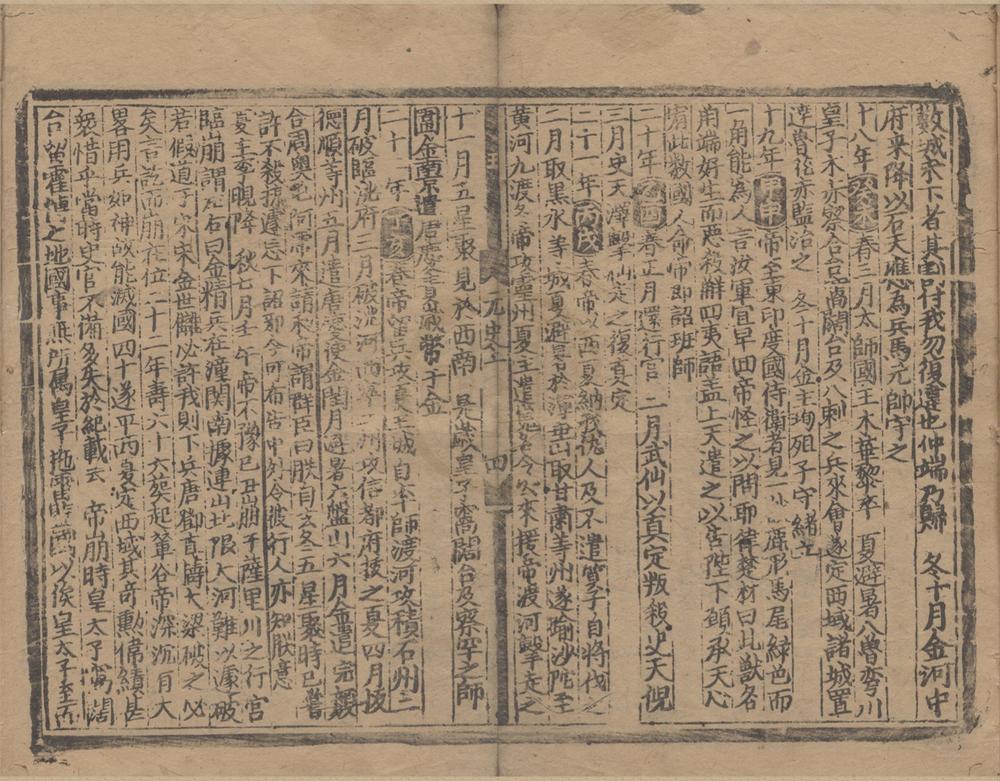 數城未下者其割付我勿復違也仲端乃歸　冬十月金河中
府來降以石天應為兵馬元帥守之
十八年癸未春三月太師國王木華黎卒　夏避暑八魯彎川
皇子朮赤察合台窩闊台及八剌之兵來會遂定西域諸城置
達魯花赤監治之　冬十月金主珣殂子守緒立
十九年甲申帝至東印度國侍衛者見一獸鹿形馬尾綠色而
一角能為人言汝軍宜早回帝怪之以問耶律楚材曰此獸名
甪端好生而惡殺解四夷語盖上天遣之以告陛下願承天心
宥此數國人命帝即詔班師
二十年乙酉春正月還行宮　二月武仙以真定叛殺史天倪
三月史天澤擊仙走之復真定
二十一年丙戌春帝以西夏納仇人及不遣質子自將伐之
二月取黑水等城夏避暑於渾垂山取甘肅等州遂踰沙陀至
黃河九渡冬帝攻靈州夏主遣嵬名令公來援帝渡河擊走之
元史上　四
十一月五星聚見於西南　是歲皇子窩闊台及察罕之師
圍金南京遣唐慶等責歲幣于金
二十二年丁亥春帝留兵攻夏王城自率師渡河攻積石州二
月破臨洮府三月破洮河西寧二州攻信都府拔之夏四月拔
德順等州五月遣唐慶使金閏月避暑六盤山六月金遣完顏
合周奧屯阿虎來請和帝謂群臣曰朕自去冬五星聚時已嘗
許不殺掠遽忘下詔耶今可布告中外令彼行人亦知朕意
夏主李睍降　秋七月壬午帝不豫己丑崩于薩里川之行宮
臨崩謂左右曰金精兵在潼關南據連山北限大河難以遽破
若假道于宋宋金世讎必許我則下兵唐鄧直擣大梁破之必
矣言訖而崩在位二十二年壽六十六葬起輦谷帝深沉有大
畧用兵如神故能滅國四十遂平西夏定西域其奇勳偉績甚
衆惜乎當時史官不備多失於紀載云　帝崩時皇太子窩闊
台留霍博之地國事無所屬皇子拖雷監國以俟皇太子至